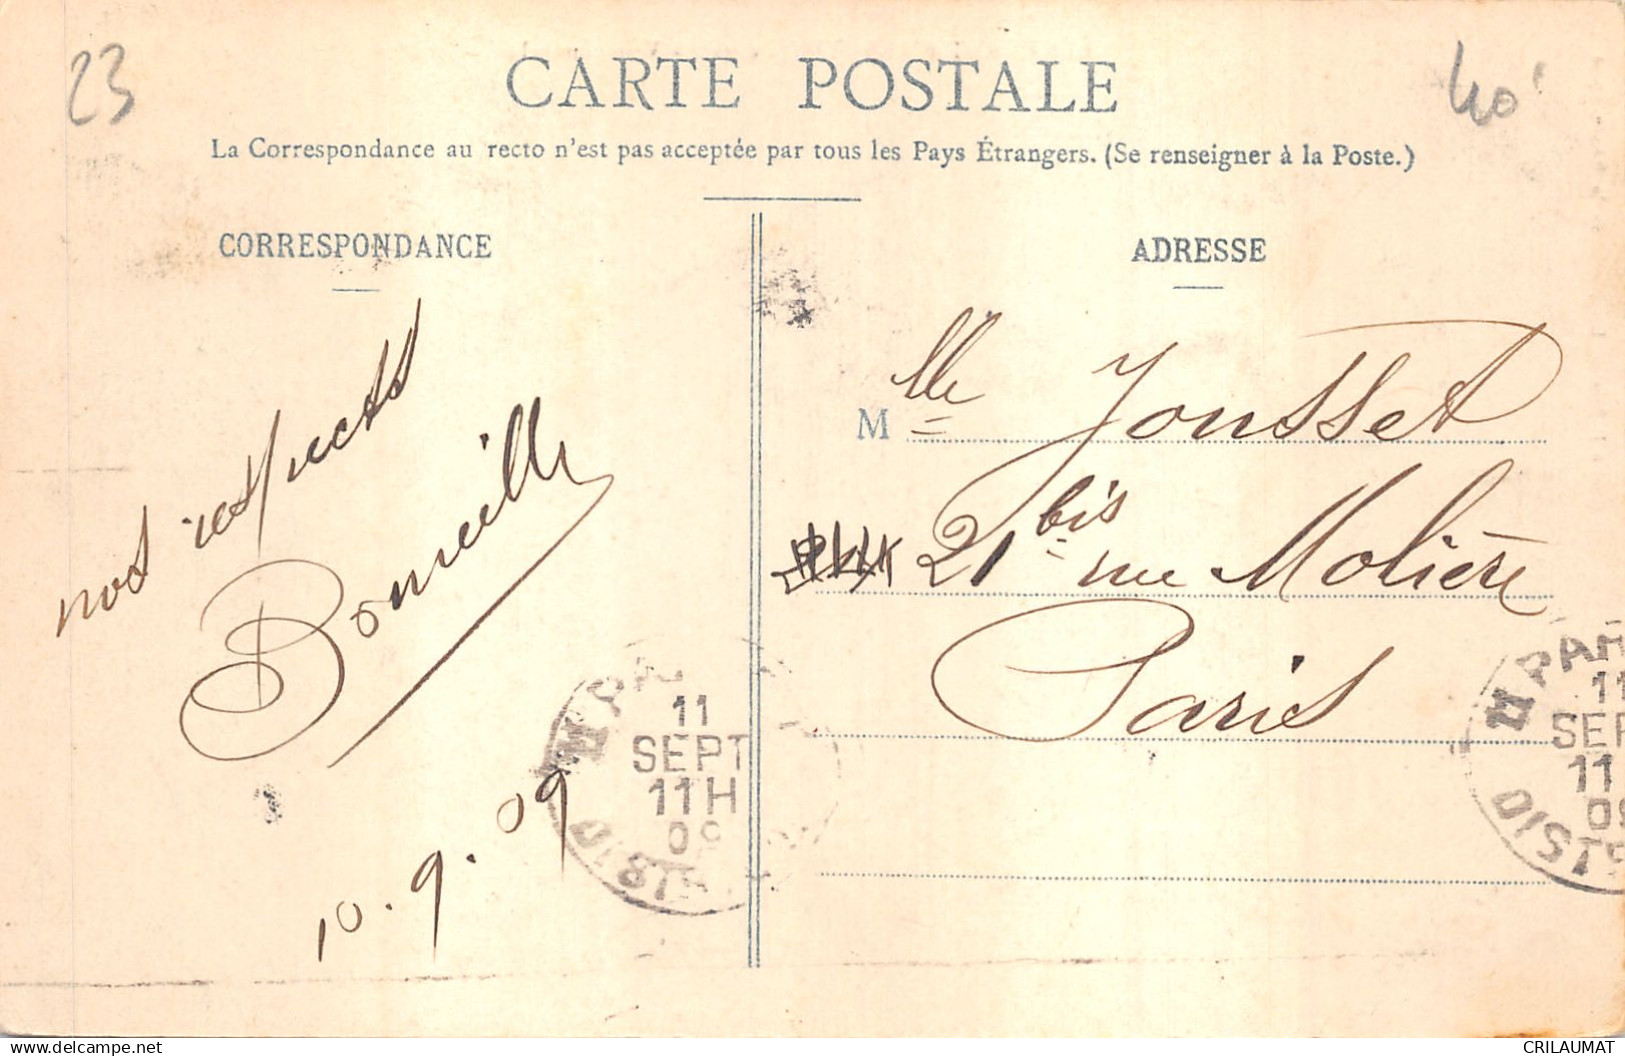 23
40
CARTE POSTALE
La Correspondance au recto n'est pas acceptée par tous les Pays Étrangers. (Se renseigner à la Poste.)
CORRESPONDANCE
nos respects
10.9.09
ADRESSE
Mlle Jousset
21 bis rue Molière
Paris
11
SEPT
11H
09
DISTR
PAR
11
SEP
11
09
DIST
CRILAUMAT